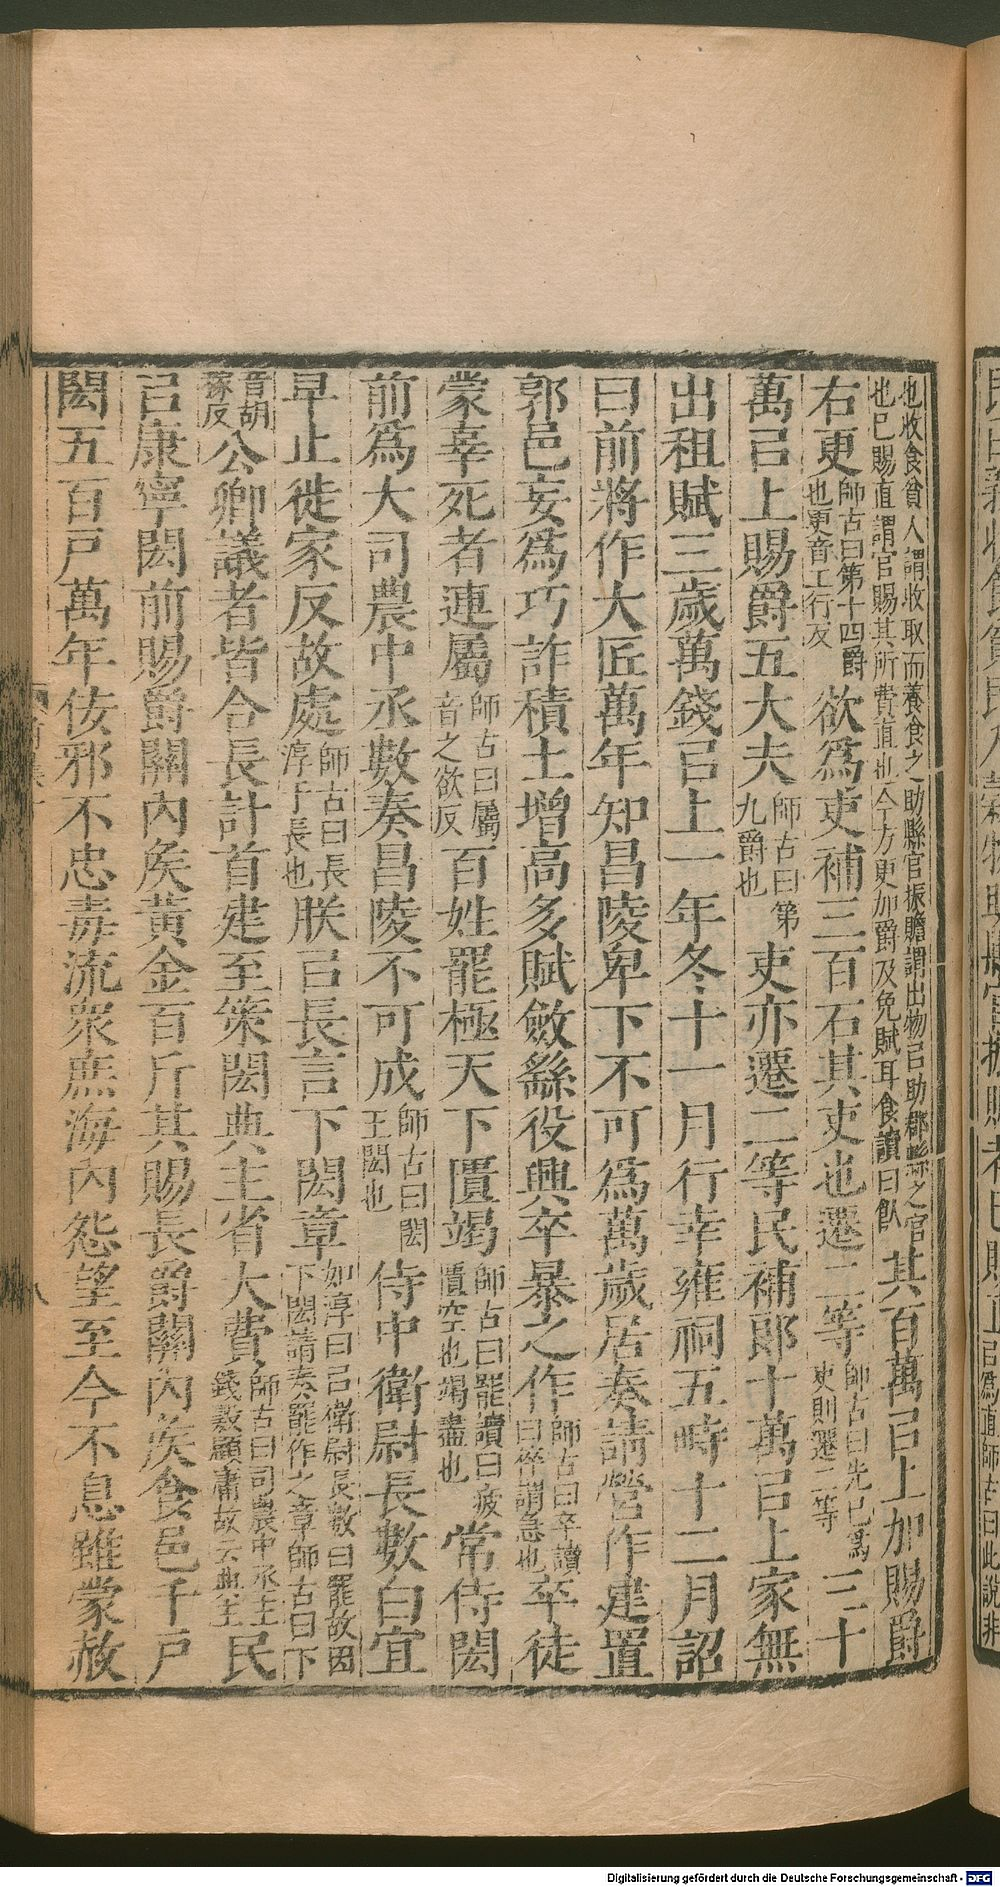 也收食貧人謂收取而養食之助縣官振贍謂出物㠯助郡縣之官
也已賜直謂官賜其所費直也今方更加爵及免賦耳食讀曰飤
其百萬㠯上加賜爵
右更師古曰第十四爵也更音工行反欲爲吏補三百石其吏也遷二等師古曰先已爲吏則遷二等三十
萬㠯上賜爵五大夫師古曰第九爵也吏亦遷二等民補郎十萬㠯上家無
出租賦三歲萬錢㠯上一年冬十一月行幸雍祠五畤十二月詔
曰前將作大匠萬年知昌陵卑下不可爲萬歲居奏請營作建置
郭邑妄爲巧詐積土增高多賦斂繇役興卒暴之作師古曰卒讀曰猝謂急也卒徒
蒙辜死者連屬師古曰屬音之欲反百姓罷極天下匱竭師古曰罷讀曰疲匱空也竭盡也常侍閎
前爲大司農中丞數奏昌陵不可成師古曰閎王閎也侍中衛尉長數白宜
早止徙家反故處師古曰長淳于長也朕㠯長言下閎章如淳曰㠯衛尉長數白罷故因下閎請奏罷作之章師古曰下
音胡稼反公卿議者皆合長計首建至策閎典主省大費師古曰司農中丞主錢穀顧庸故云典主民
㠯康寧閎前賜爵關內矦黃金百斤其賜長爵關內矦食邑千戸
閎五百戸萬年佞邪不忠毒流衆庶海內怨望至今不息雖蒙赦
八
Digitalisierung gefördert durch die Deutsche Forschungsgemeinschaft - DFG